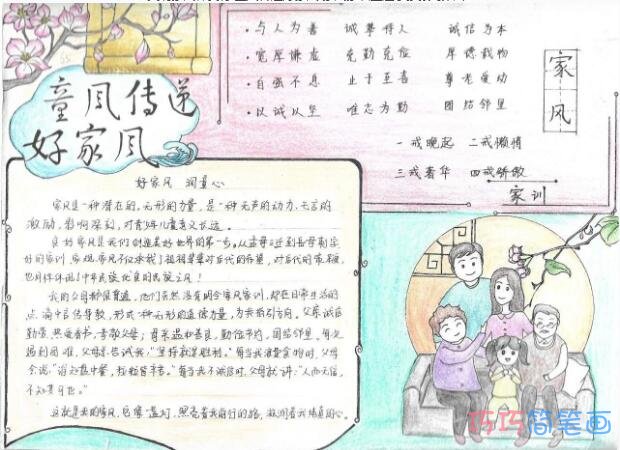 童风传递
好家风
·与人为善 诚挚待人 诚信为本
·宽厚谦虚 克勤克俭 厚德载物
·自强不息 止于至善 尊老爱幼
·以诚以坚 唯志为勤 团结邻里
家风
一戒晚起 二戒懒惰
三戒奢华 四戒骄傲
家训
好家风 润童心
家风是一种潜在的,无形的力量,是一种无声的动力,无言的
激励,影响深刻,对青少年儿童意义长远。
良好家风是我们创造美好世界的第一步。从孟母三迁到岳母刺字
好的家训,家规,家风不仅承载了祖祖辈辈对后代的希望,对后代的
也同样体现了中华民族优良的民族之风!
我的父母都很普通,他们虽然没有明令家风家训,却在日常生活的点
滴中言传身教,形成一种无形的道德力量,为我指引方向,父亲诚后
勤劳,热爱看书,孝敬父母;母亲温和善良,勤俭节约,团结邻里。每次
遇到困难,父母总告诫我:"坚持就是胜利。"每当我浪费食物时,父母
会说:"谁知盘中餐,粒粒皆辛苦。"每当我不诚信时,父母就讲:"人而无信,
不知其可也。"
这就是我的家风,它像一盏灯,照亮着我前行的路,滋润着我
巧巧简笔画